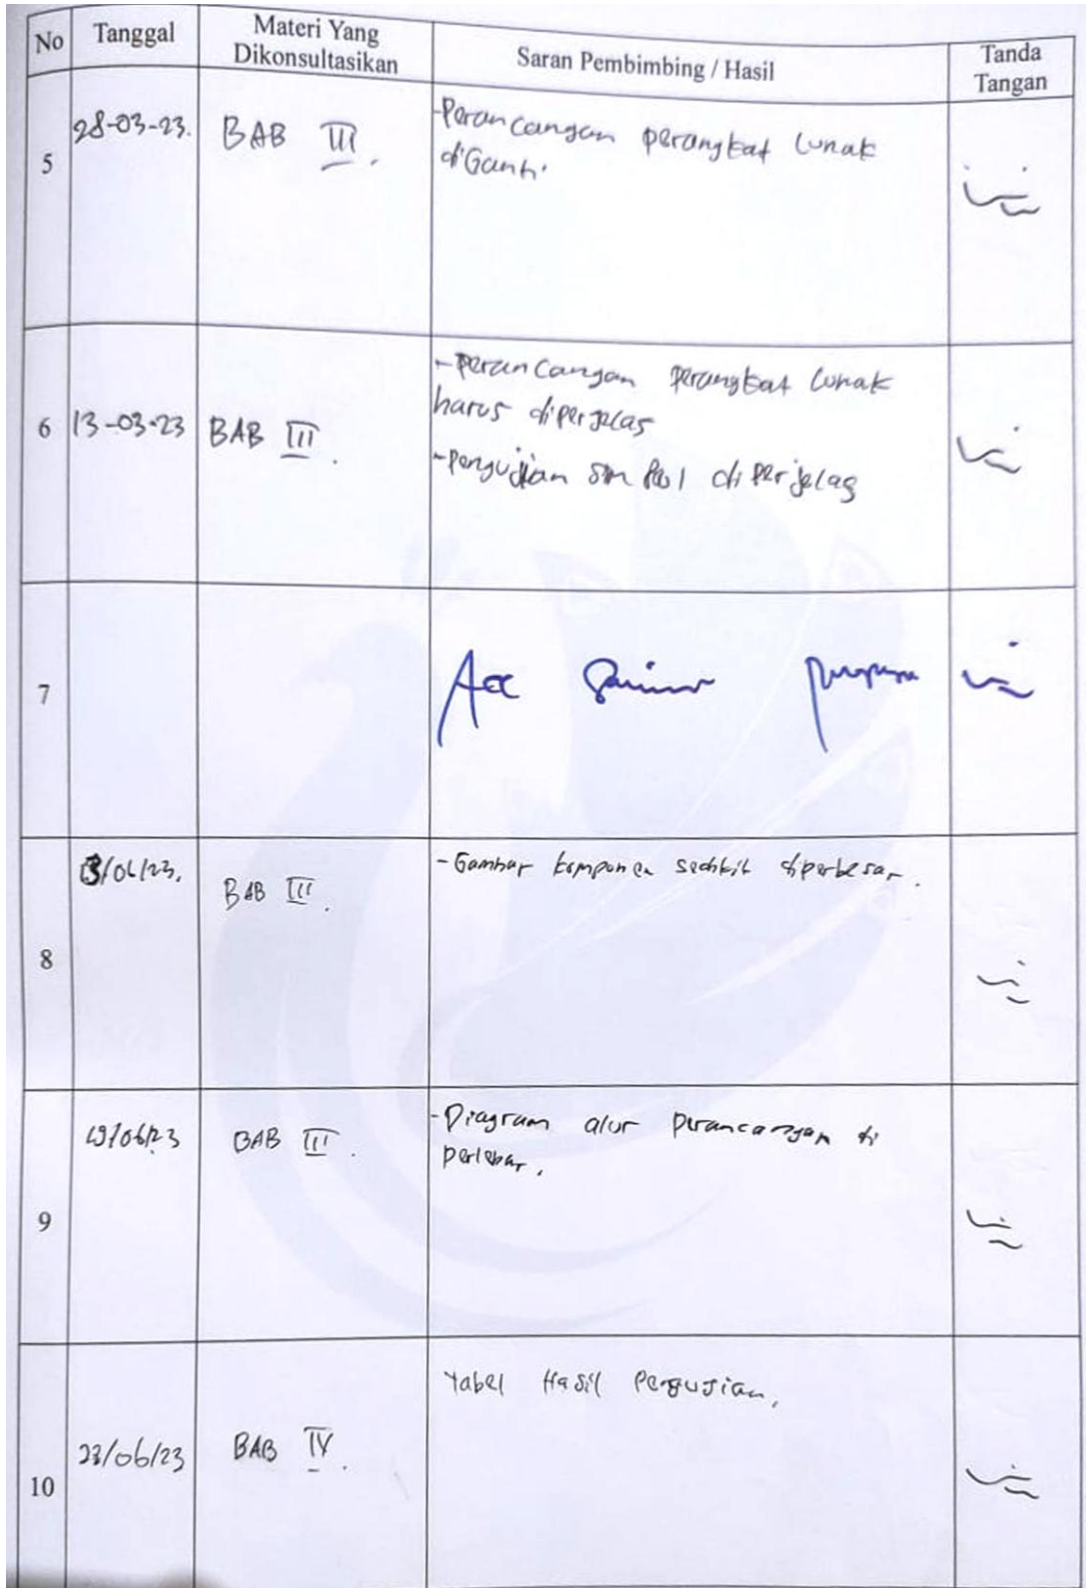 No Tanggal Materi Yang Dikonsultasikan Saran Pembimbing / Hasil Tanda Tangan
5 28-03-23. BAB III. -Perancangan perangkat lunak
diGanti.
6 13-03-23 BAB III. -Perancangan perangkat lunak
harus diperjelas
-Pengujian diperjelas
7 Acc
8 /06/23. BAB III. -Gambar komponen diperbesar.
9 19/06/23 BAB III. -Diagram alur Perancangan di
perlebar.
10 23/06/23 BAB IV. Tabel Hasil Pengujian.